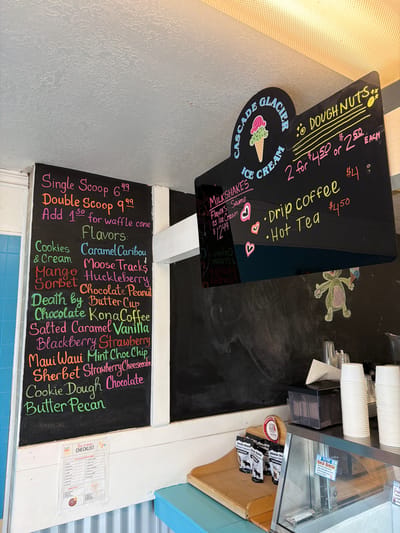 Single Scoop 6.49
Double Scoop 9.49
Add 1.50 for waffle cone
Flavors
Cookies & Cream
Caramel Caribou
Moose Tracks
Mango Sorbet
Huckleberry
Chocolate Peanut Butter Cup
Death by Chocolate
Kona Coffee
Salted Caramel
Vanilla
Blackberry
Strawberry
Maui Waui Sherbet
Mint Choc Chip
Strawberry Cheesecake
Cookie Dough
Chocolate
Butter Pecan
CASCADE GLACIER
ICE CREAM
MILKSHAKES
DOUGHNUTS
2 for $4.50 or $2.50 EACH
• Drip Coffee $4
• Hot Tea $4.50